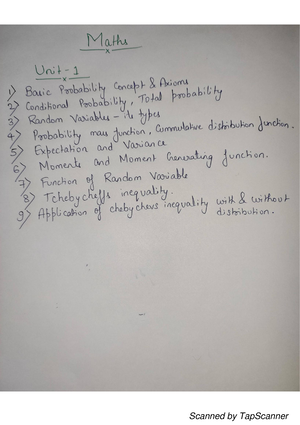 Maths
Unit - 1
1) Basic Probability Concept & Axioms
2) Conditional Probability, Total probability
3) Random Variables - its types
4) Probability mass function, Cummutative distribution function.
5) Expectation and Variance
6) Moments and Moment Generating function.
7) Function of Random Variable
8) Tchebycheffs inequality.
9) Application of chebychevs inequality with & without
distribution.
Scanned by TapScanner